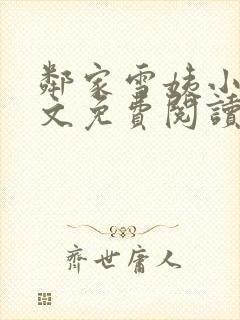 鄰家雪姨小
文免費閱讀
齊世庸人